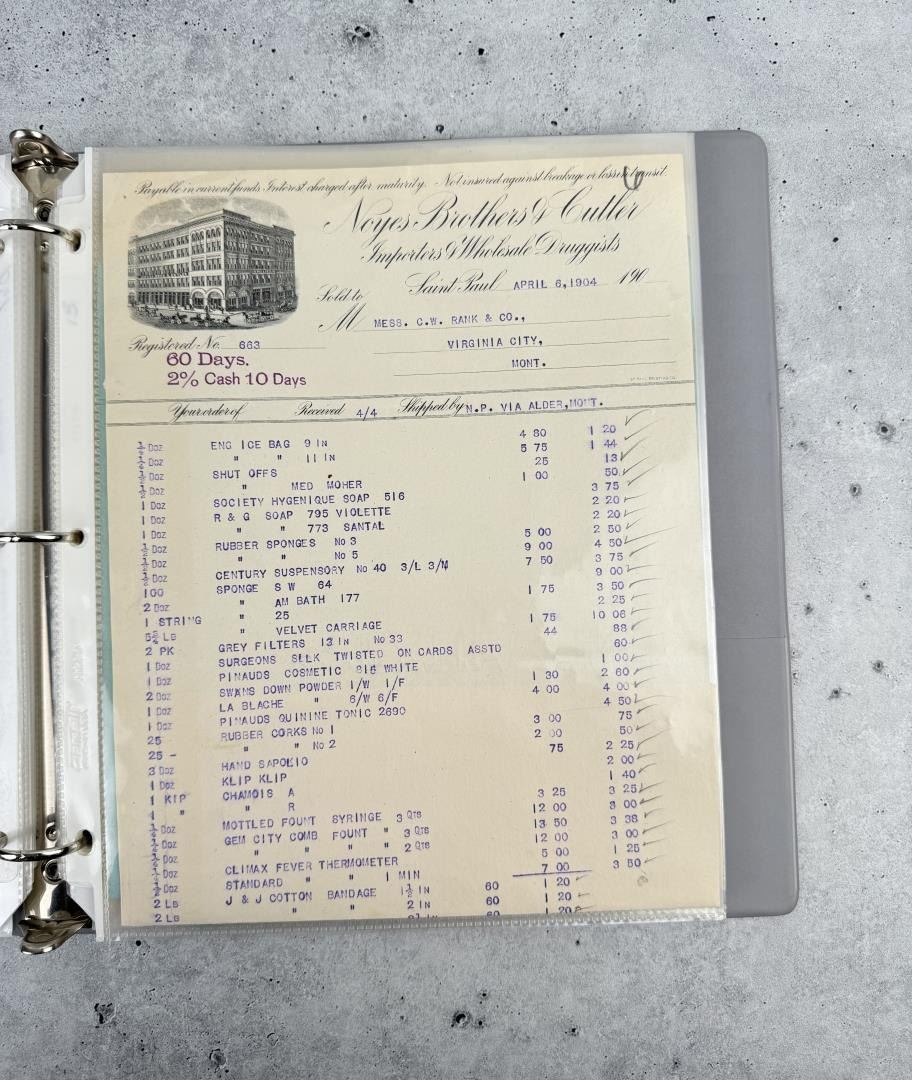 Payable in current funds. Interest charged after maturity. Not insured against breakage or loss in transit.
Noyes Brothers & Cutler
Importers & Wholesale Druggists
Saint Paul APRIL 6,1904 190
Sold to
M MESS. C.W. RANK & CO.,
VIRGINIA CITY,
MONT.
Registered No. 663
60 Days.
2% Cash 10 Days
Your order of Received 4/4 Shipped by N.P. VIA ALDER, MONT.
ENG ICE BAG 9 IN 4 80 1 20
" " 11 IN 5 75 1 44
SHUT OFFS 25 13
" MED MOHER 1 00 50
SOCIETY HYGENIQUE SOAP 516 3 75
1 Doz R & G SOAP 795 VIOLETTE 2 20
1 Doz " " 773 SANTAL 2 20
RUBBER SPONGES No 3 5 00 2 50
" " No 5 9 00 4 50
CENTURY SUSPENSORY No 40 3/L 3/M 7 50 3 75
100 SPONGE S W 64 9 00
2 Doz " AM BATH 177 1 75 3 50
1 STRING " 25 2 25
LB " VELVET CARRIAGE 1 75 10 06
2 PK GREY FILTERS 13 IN No 33 44 88
1 Doz SURGEONS SILK TWISTED ON CARDS ASSTD 60
1 Doz PINAUDS COSMETIC WHITE 1 00
2 Doz SWANS DOWN POWDER 1/W 1/F 1 30 2 60
1 Doz LA BLACHE " 6/W 6/F 4 00 4 00
1 Doz PINAUDS QUININE TONIC 2690 4 50
25 RUBBER CORKS No 1 3 00 75
25 - " " No 2 2 00 50
3 Doz HAND SAPOLIO 75 2 25
1 Doz KLIP KLIP 2 00
1 KIP CHAMOIS A 1 40
" R 3 25 3 25
MOTTLED FOUNT SYRINGE 3 QTS 12 00 3 00
GEM CITY COMB FOUNT " 3 QTS 13 50 3 38
" " " " 2 QTS 12 00 3 00
CLIMAX FEVER THERMOMETER 5 00 1 25
STANDARD " " 1 MIN 7 00 3 50
2 LB J & J COTTON BANDAGE 1½ IN 60 1 20
2 LB " " 2 IN 60 1 20
60 1 20